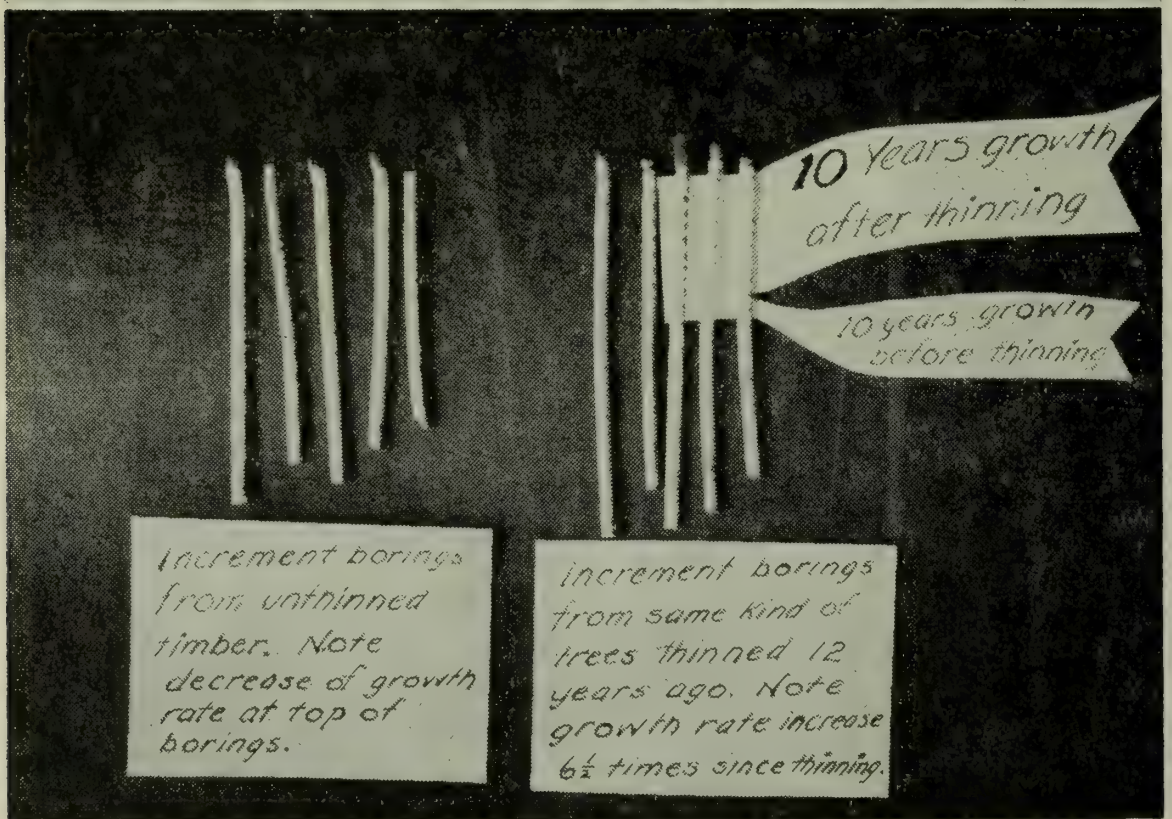 10 Years growth
after thinning
10 years growth
before thinning
Increment borings
from unthinned
timber. Note
decrease of growth
rate at top of
borings.
Increment borings
from same kind of
trees thinned 12
years ago. Note
growth rate increase
6½ times since thinning.